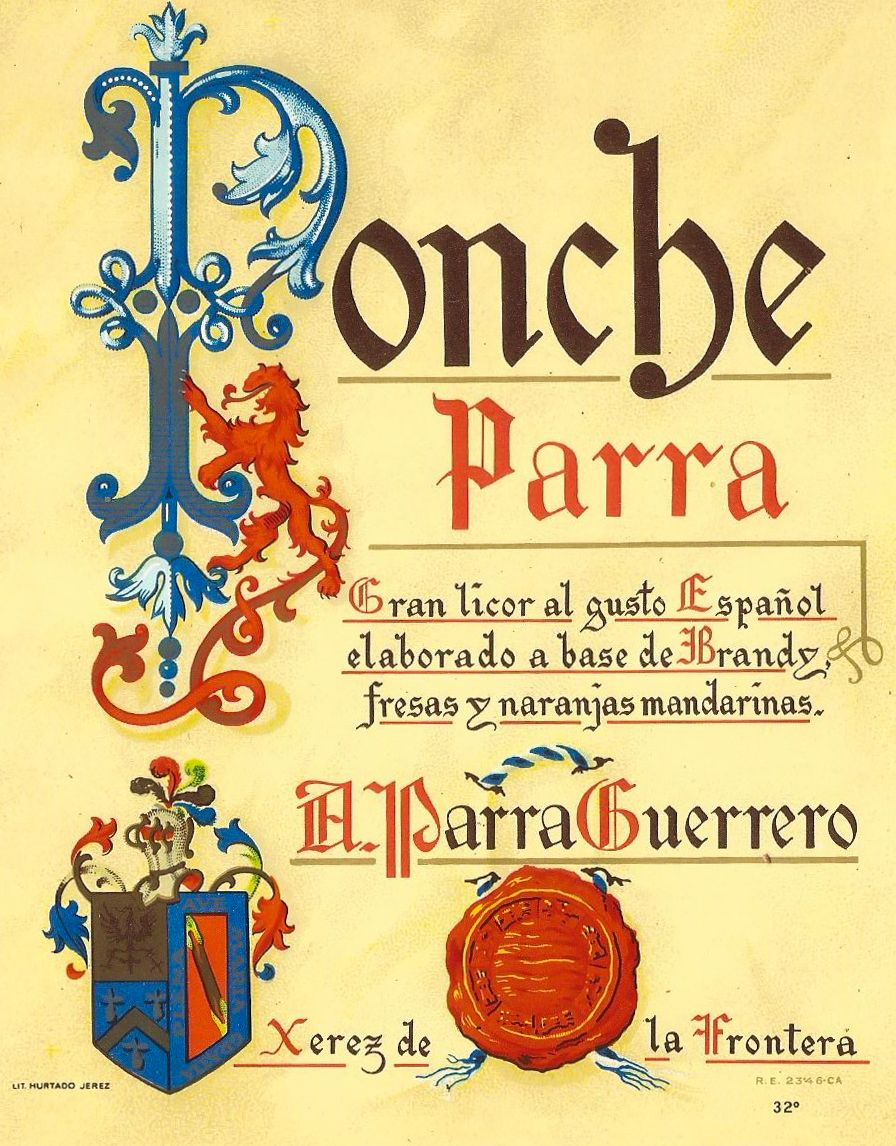 Ponche
Parra
Gran licor al gusto Español
elaborado a base de Brandy,
fresas y naranjas mandarinas.
A. Parra Guerrero
AVE
MARIA
Xerez de la Frontera
LIT. HURTADO JEREZ
R.E. 2346-CA
32º